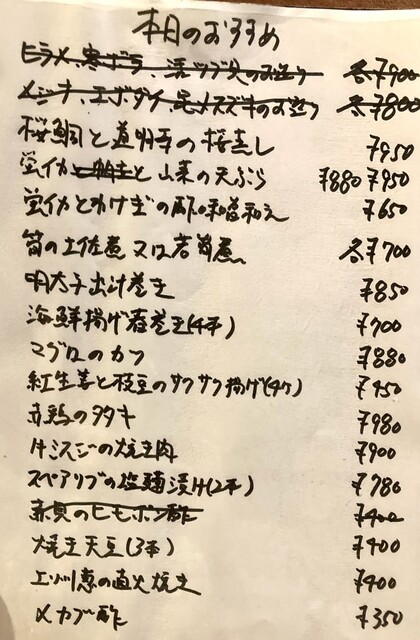 本日のおすすめ
ヒラメ、寒ブラ、活ツブ貝のお造り 各¥900
メジナ、エボダイ、〆スズキのお造り 各¥800
桜鯛と道明寺の桜蒸し ¥950
蛍イカと山菜の天ぷら ¥880 ¥950
蛍イカとわけぎの酢味噌和え ¥650
筍の土佐煮 又は若筍煮 各¥700
明太子出汁巻き ¥850
海鮮揚げ春巻き(4本) ¥700
マグロのカツ ¥880
紅生姜と枝豆のサクサク揚げ(4ケ) ¥450
赤鶏のタタキ ¥980
牛スジの焼き肉 ¥900
スペアリブの塩麹漬け(2本) ¥780
赤貝のヒモポン酢 ¥400
焼き天豆(3本) ¥400
エシャレットの直火焼き ¥400
メカブ酢 ¥350